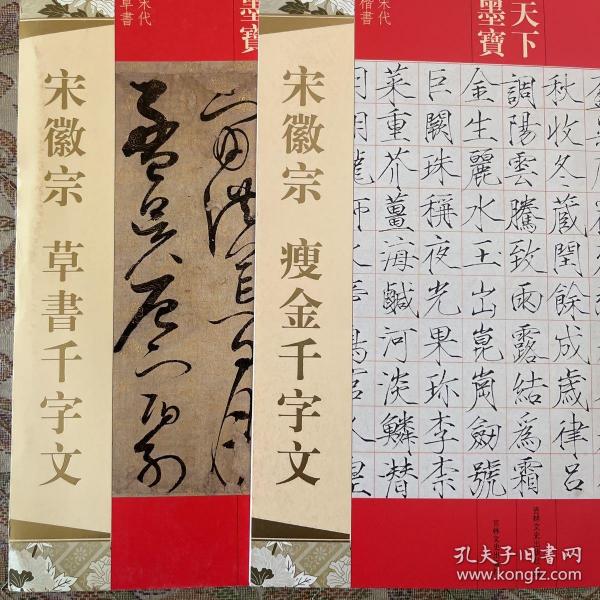 宋代
草書
墨寶
宋徽宗 草書千字文
宙洪荒日月
盈昃辰宿列
宋代
楷書
天下
墨寶
宋徽宗 瘦金千字文
秋收冬藏閏餘成歲律呂
調陽雲騰致雨露結爲霜
金生麗水玉出崑崗劒號
巨闕珠稱夜光果珍李柰
菜重芥薑海鹹河淡鱗潛
吉林文史出
吉林文史出
孔夫子旧书网
www.kongfz.com